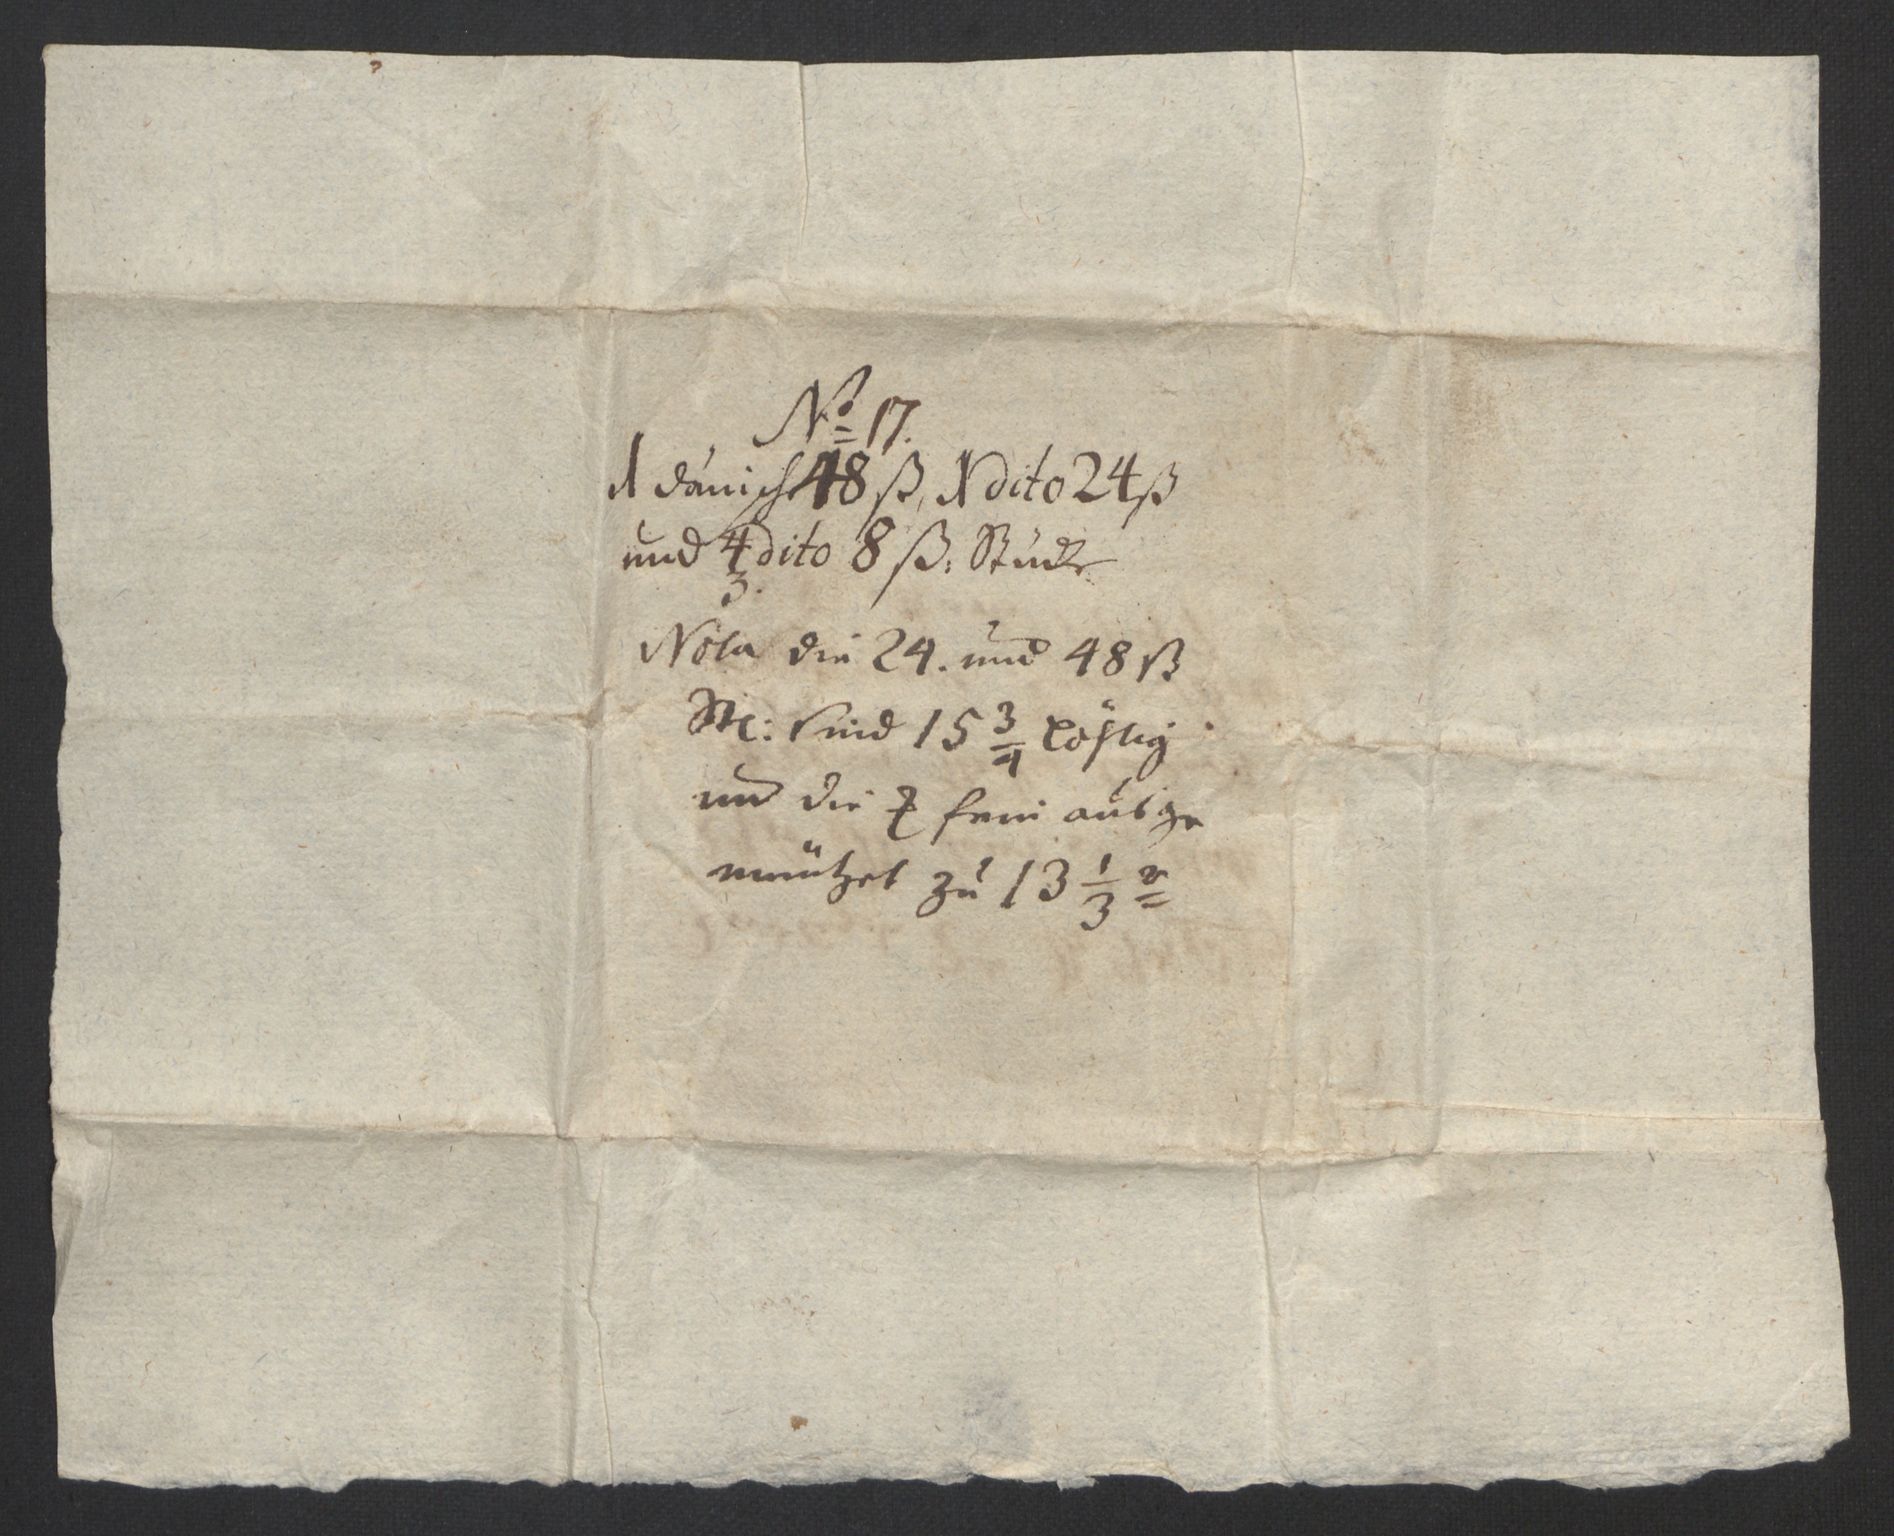 No 17.
1 dänisch 48 ß, 1 dito 24 ß
und 4 dito 8 ß: Stück
3.
Nota die 24. und 48 ß
St: sind 15 3/4 löthig
und die fein ausge
müntzet zu 13 1/3